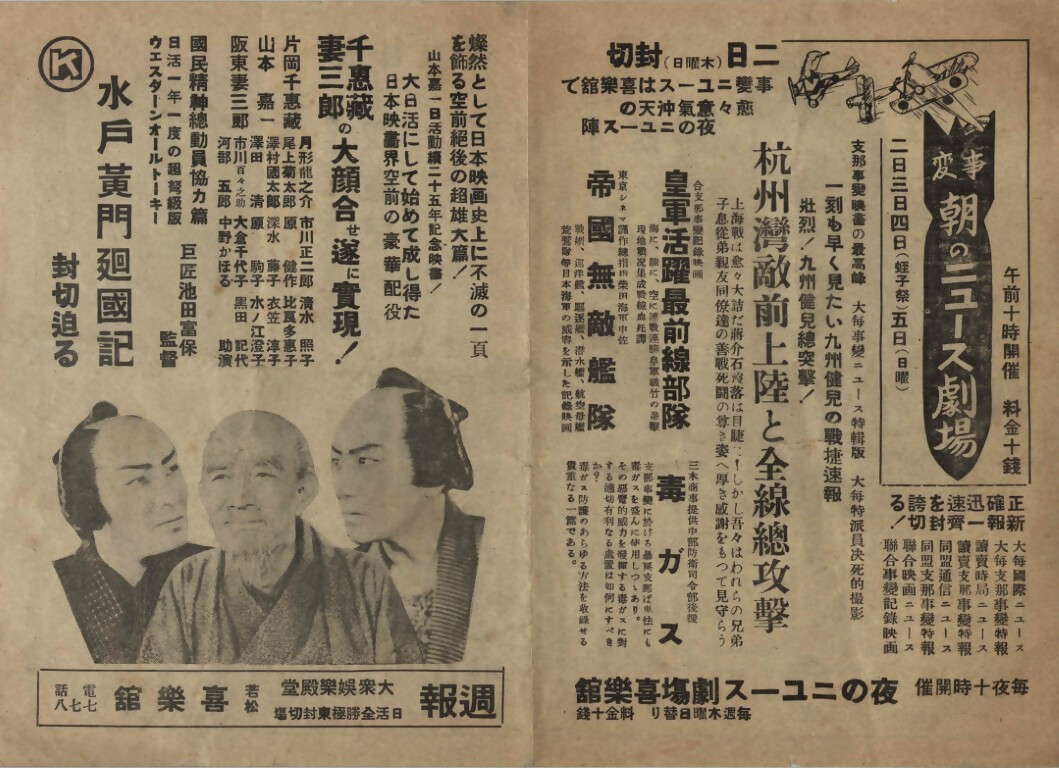 二日(木曜日)封切
事變ニュースは喜樂舘で
愈々意氣沖天の
夜のニュース陣
事変
朝のニュース劇場
午前十時開催 料金十錢
二日三日四日(蛭子祭)五日(日曜)
支那事變映畫の最高峰 大每事變ニュース特輯版 大每特派員決死的撮影
一刻も早く見たい九州健兒の戰捷速報
壯烈!九州健兒總突擊!
杭州灣敵前上陸と全線總攻擊
上海戰は愈々大詰だ蔣介石沒落は目睫!しかし吾々はわれらの兄弟
子息從弟親友同僚達の善戰死鬪の尊き姿へ厚き感謝をもつて見守らう
合支那事變記錄映画
皇軍活躍最前線部隊
東京シネマ謹作總指揮柴田海軍中佐
帝國無敵艦隊
戰艦、巡洋艦、驅逐艦、潜水艦、航空母艦
荒鷲隊等日本海軍の威容を示した記錄映画
三木商事提供中部防衛司令部後援
毒ガス
支那事變に於ける暴戾支那は卑怯にも
毒ガスを盛んに使用しつゝあり。
その惡魔的威力を發揮する毒ガスに對
する適切有利なる處置は如何にすべき
か?
毒ガス防護のあらゆる方法を收錄せる
貴重なる一篇である。
正確迅速を誇る
新報一齊封切!
大每國際ニュース
大每支那事變特報
讀賣時局ニュース
讀賣支那事變特報
同盟通信ニュース
同盟支那事變特報
聯合映画ニュース
聯合事變記錄映画
每夜十時開催 夜のニュース劇塲喜樂舘
每週木曜日替り 料金十錢
燦然として日本映画史上に不滅の一頁
を飾る空前絕後の超雄大篇!
山本嘉一日活動續二十五年記念映畫!
大日活にして始めて成し得た
日本映畫界空前の豪華配役
千惠藏
妻三郎の大顏合せ遂に實現!
片岡千惠藏
山本嘉一
阪東妻三郎
月形龍之介 市川正二郎 淸水照子
尾上菊太郎 原健作 比良多惠子
澤村國太郎 深水藤子 衣笠淳子
澤田淸 原駒子 水ノ江澄子
市川百々之助 大倉千代子 黑田記代
河部五郎 中野かほる 助演
國民精神總動員協力篇
日活一年一度の超弩級版
ウエスターンオールトーキー
巨匠池田富保
監督
K
水戶黃門廻國記
封切迫る
週報
大衆娛樂殿堂
日活全勝極東封切塲
若松
喜樂舘
電話七七八